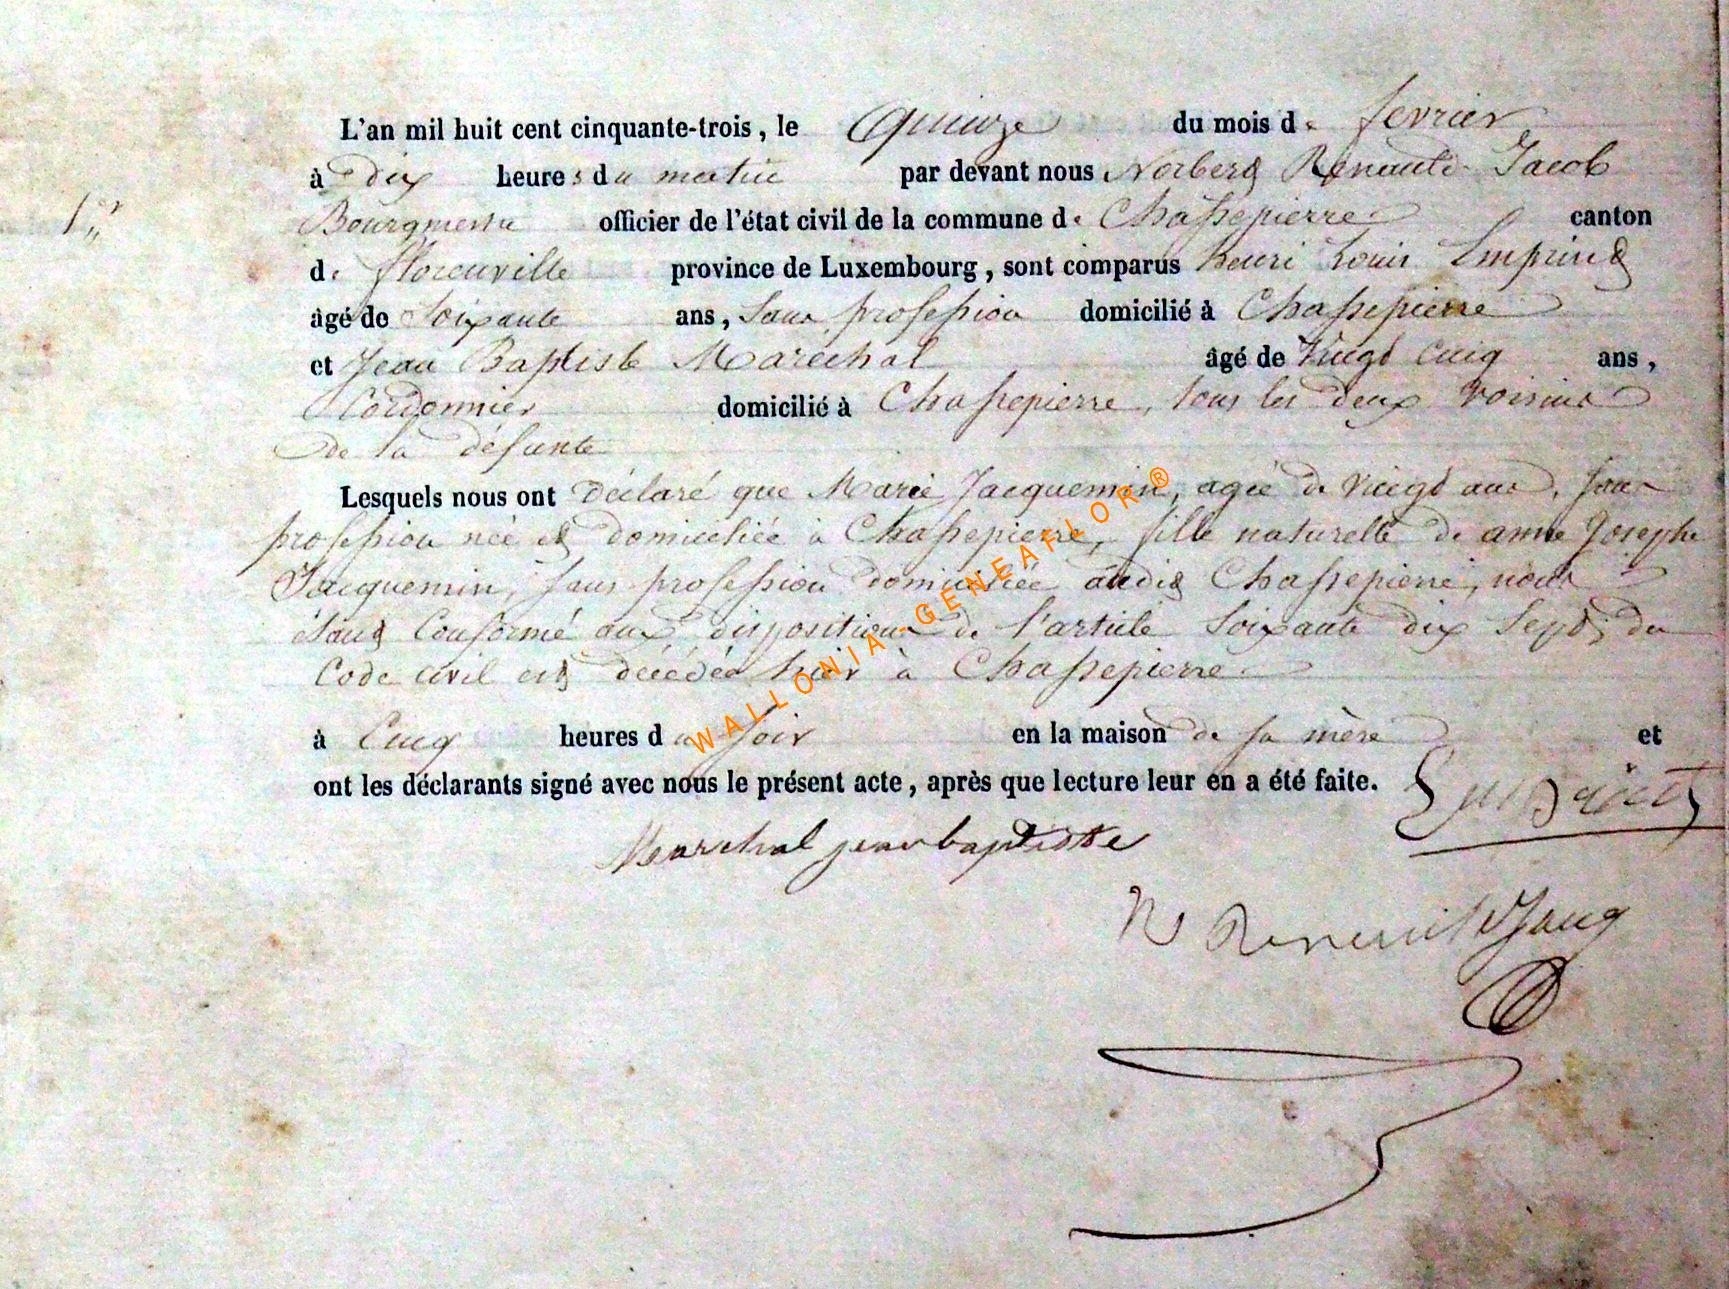 L'an mil huit cent cinquante-trois, le quinze du mois de fevrier
à dix heures du matin par devant nous Norbert Renauld Jacob
1er
Bourgmestre officier de l'état civil de la commune de Chassepierre canton
de florenville province de Luxembourg, sont comparus henri Louis Emprind
âgé de Soixante ans, Sans profession domicilié à Chassepierre
et Jean Baptiste Marechal âgé de Vingt Cinq ans,
Cordonnier domicilié à Chassepierre, tous les deux voisins
de la défunte
Lesquels nous ont déclaré que Marie Jacquemin, agée de vingt ans, sans
profession née et domiciliée à Chassepierre, fille naturelle de anne Josephe
Jacquemin, sans profession domiciliée audit Chassepierre, nous
étant Conformé aux dispositions de l'article Soixante dix Sept, du
Code civil est décédée hier à Chassepierre
à Cinq heures du soir en la maison de sa mère et
ont les déclarants signé avec nous le présent acte, après que lecture leur en a été faite.
Marchal jean baptiste
N
WALLONIA-GENEAFLOR ®